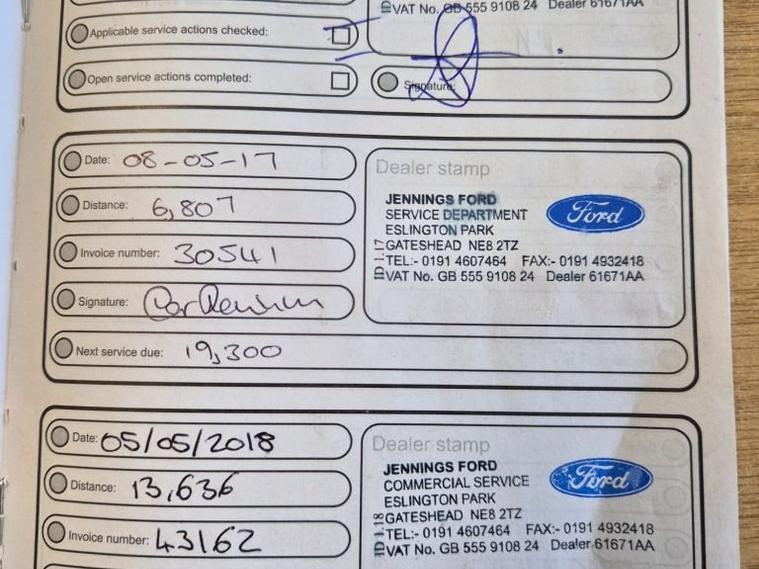 VAT No. GB 555 9108 24 Dealer 61671AA
Applicable service actions checked:
Open service actions completed:
Signature:
Date: 08-05-17
Distance: 6,807
Invoice number: 30541
Signature:
Next service due: 19,300
Dealer stamp
JENNINGS FORD
SERVICE DEPARTMENT
ESLINGTON PARK
GATESHEAD NE8 2TZ
TEL:- 0191 4607464 FAX:- 0191 4932418
VAT No. GB 555 9108 24 Dealer 61671AA
ID 1.17
Ford
Date: 05/05/2018
Distance: 13,636
Invoice number: 43162
Dealer stamp
JENNINGS FORD
COMMERCIAL SERVICE
ESLINGTON PARK
GATESHEAD NE8 2TZ
TEL:- 0191 4607464 FAX:- 0191 4932418
VAT No. GB 555 9108 24 Dealer 61671AA
ID 1.18
Ford